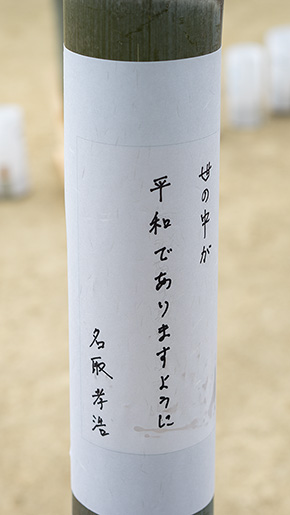 世の中が
平和でありますように
名取孝浩